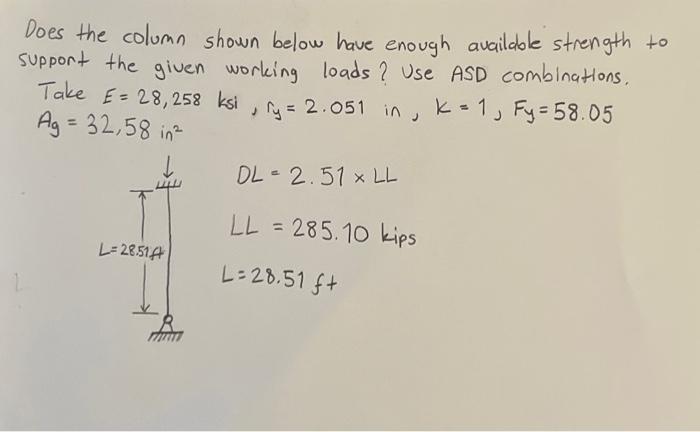 Does the column shown below have enough available strength to
support the given working loads? Use ASD combinations.
Take E = 28,258 ksi , ry = 2.051 in , K = 1, Fy = 58.05
Ag = 32,58 in²
DL = 2.51 × LL
LL = 285.10 kips
L=28.51ft
L=28.51 ft